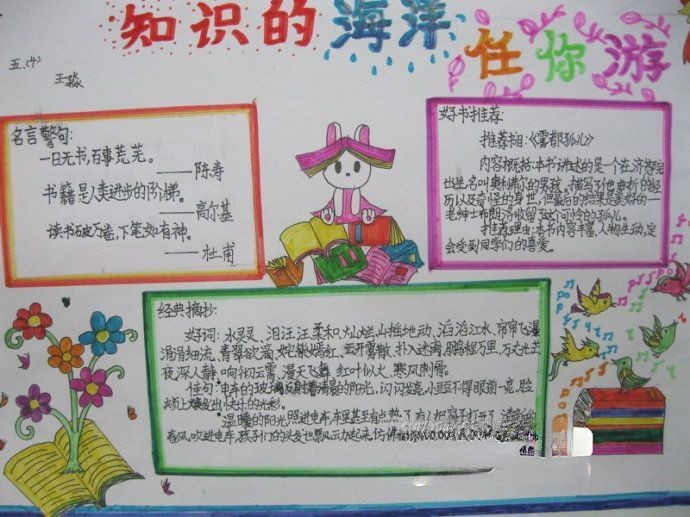 知识的海洋任你游
五、(4)
王淼
名言警句:
一日无书,百事荒芜。
——陈寿
书籍是人类进步的阶梯。
——高尔基
读书破万卷,下笔如有神。
——杜甫
好书推荐:
推荐书目:《雾都孤儿》
内容概括:本书讲述的是一个在济贫院
出生名叫奥利弗尔的男孩。描写了他曲折的经
历以及奇怪的身世,但最后的结果是美好的一
老绅士布朗洛收留了这个可怜的孤儿。
推荐理由:本书内容丰富,人物生动,定
会受到同学们的喜爱。
经典摘抄:
好词:水灵灵、泪汪汪、柔和、灿烂、山摇地动、滔滔江水、帘帘飞瀑
涓涓细流、青翠欲滴、姹紫嫣红、云开雾散、扑入迷离、鹏程万里、万丈光芒
夜深人静、响彻云霄、漫天飞舞、红叶似火、寒风刺骨。
佳句:电车的玻璃反射着清晨的阳光,闪闪发亮,小豆豆不得眼前一亮,脸
颊上焕发出快乐的光彩。
温暖的阳光照进电车,车里甚至有点热了,有人把窗子打开了,清新的
春风吹进电车,孩子们的头发也飘动起来,仿佛